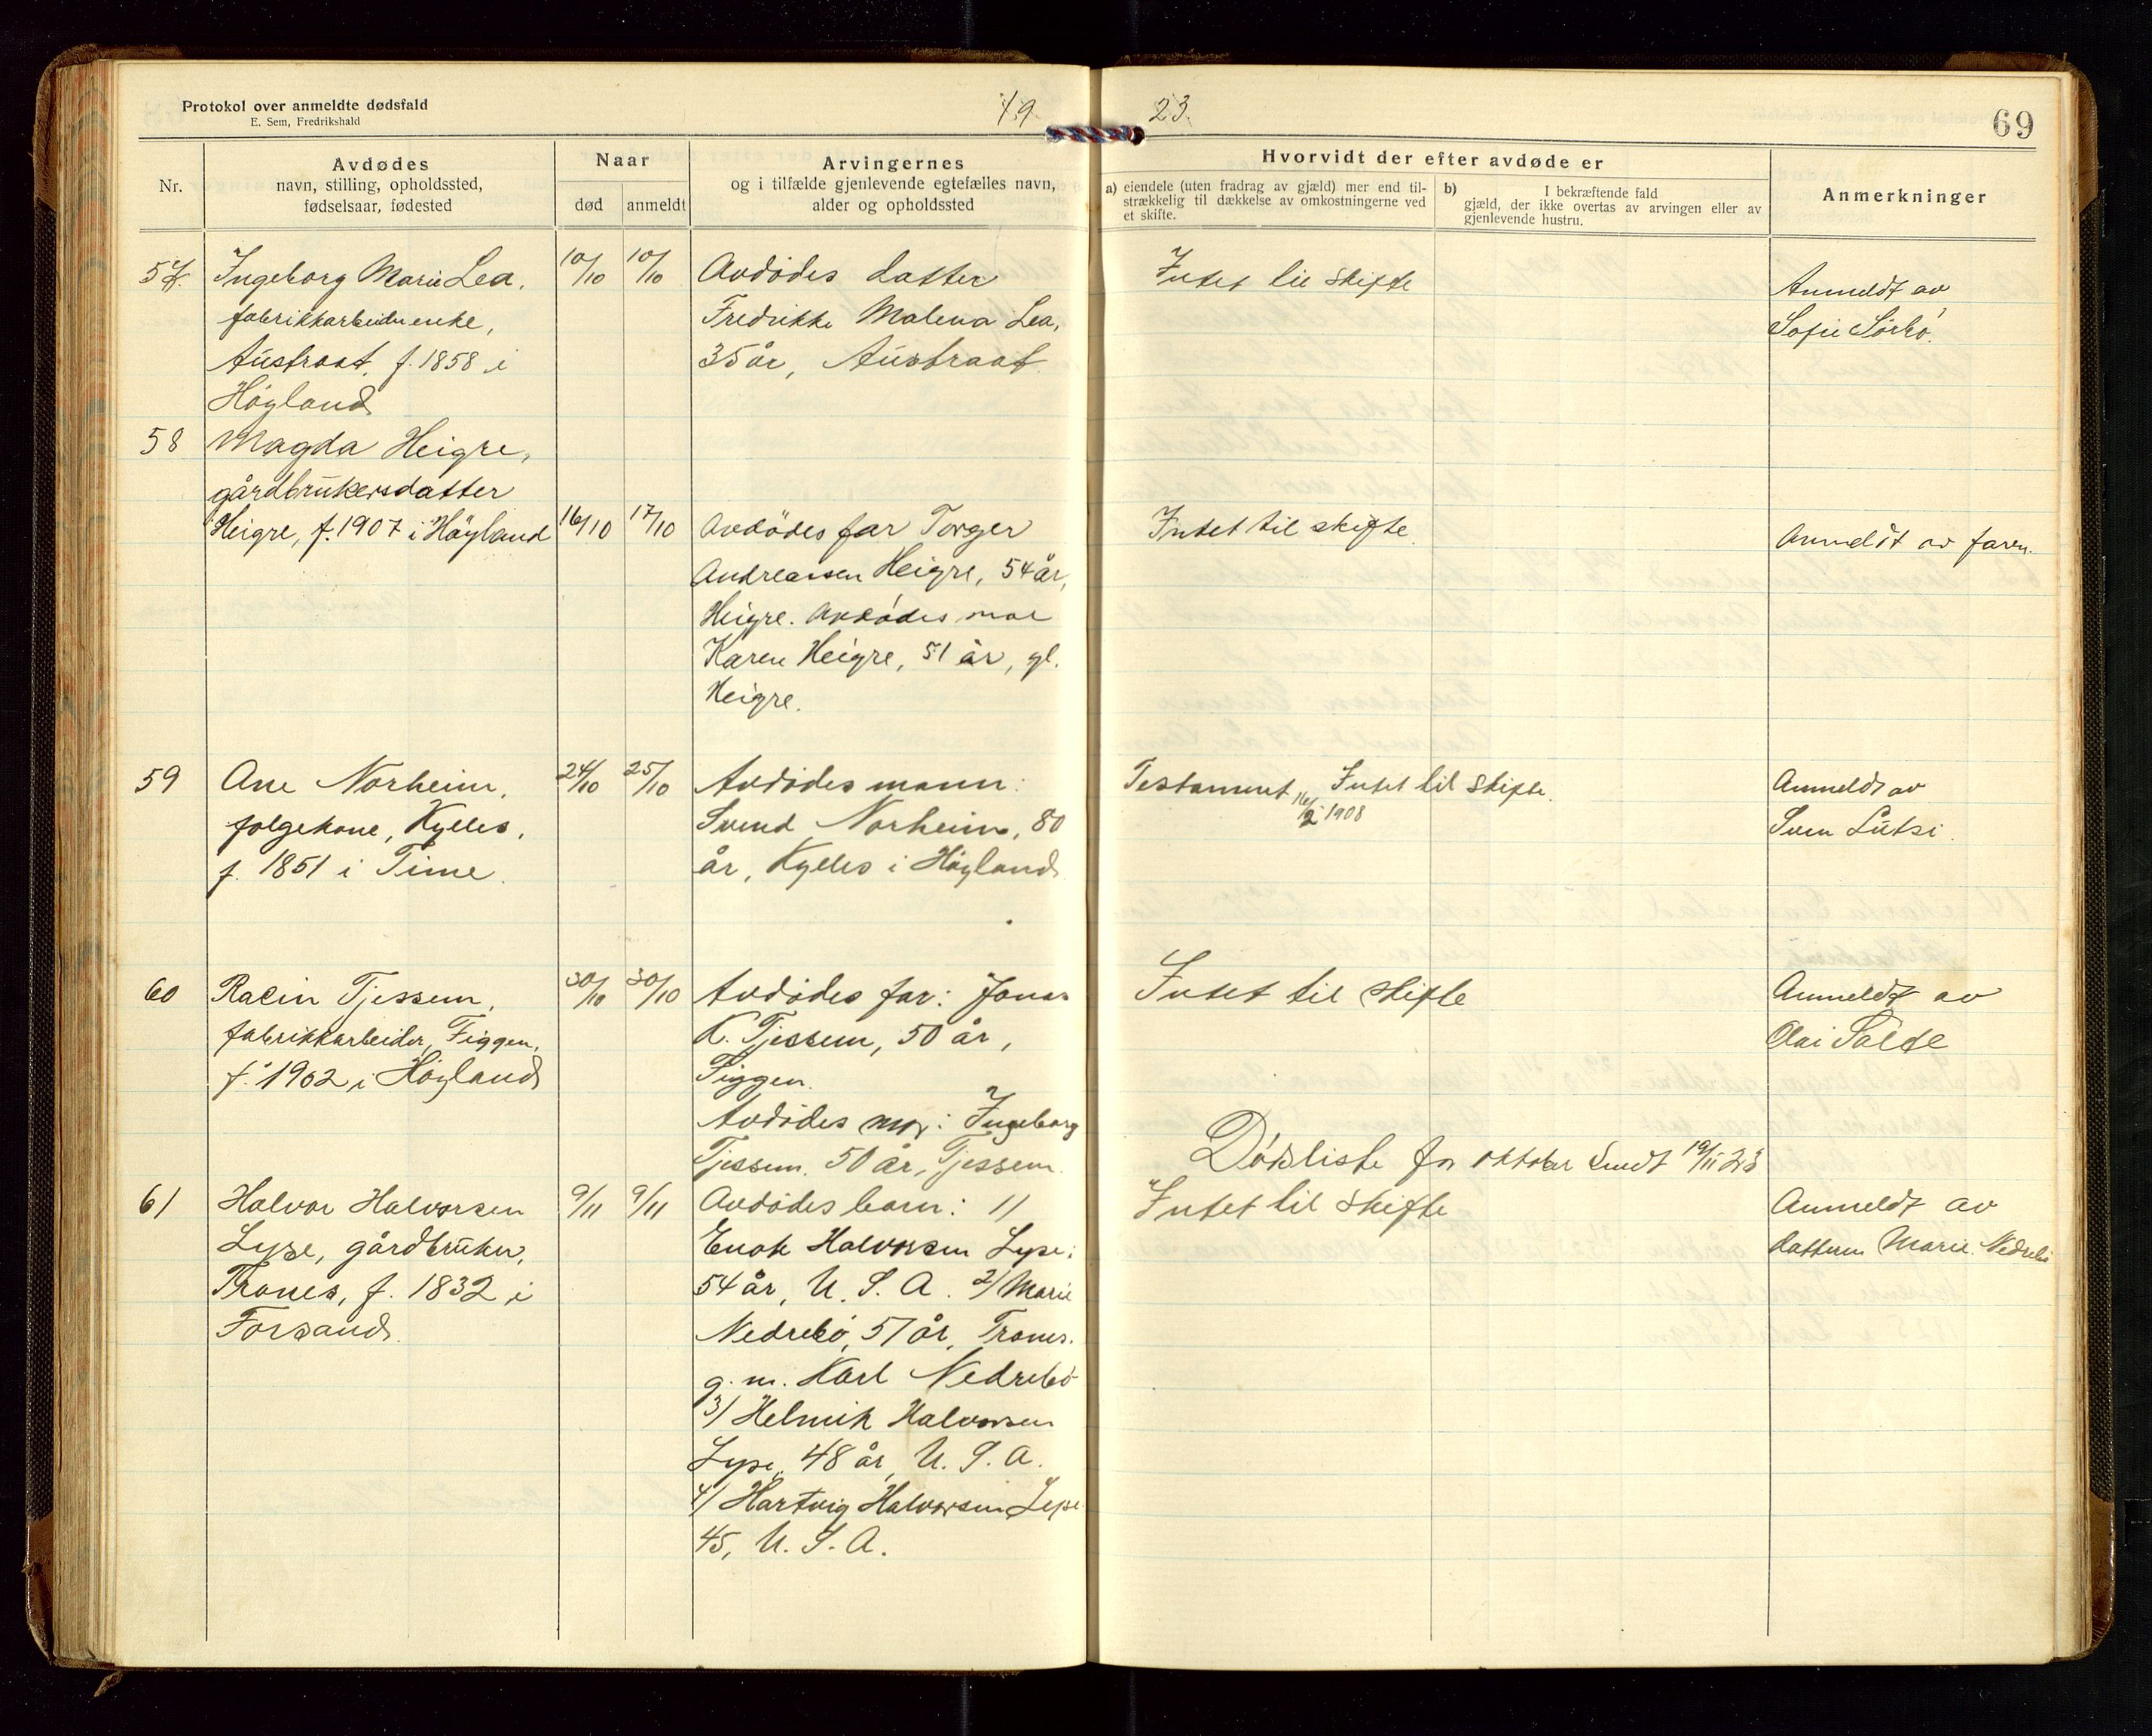 Protokol over anmeldte dødsfald
E. Sem, Fredrikshald
19
23.
69
Nr.
Avdødes
navn, stilling, opholdssted,
fødselsaar, fødested
Naar
død
anmeldt
Arvingernes
og i tilfælde gjenlevende egtefælles navn,
alder og opholdssted
Hvorvidt der efter avdøde er
a) eiendele (uten fradrag av gjæld) mer end til-
strækkelig til dækkelse av omkostningerne ved
et skifte.
b) I bekræftende fald
gjæld, der ikke overtas av arvingen eller av
gjenlevende hustru.
Anmerkninger
57.
Ingeborg Marie Lea,
fabrikkarbeiderenke,
Austraat, f. 1858 i
Høyland
10/10
10/10
Avdødes datter
Fredrikke Malena Lea,
35 år, Austraat
Intet til skifte
Anmeldt av
Sofie Sørbø.
58
Magda Heigre,
gårdbrukersdatter
Heigre, f. 1907 i Höyland
16/10
17/10
Avdödes far Torger
Andreassen Heigre, 54 år,
Heigre. Avdödes mor
Karen Heigre, 51 år, gl.
Heigre.
Intet til skifte.
Anmeldt av faren.
59
Ane Norheim,
folgekone, Kylles,
f. 1851 i Time.
24/10
25/10
Avdødes mann:
Svend Norheim, 80
år, Kylles i Høyland
Testament Intet til skifte.
16/2 1908
Anmeldt av
Sven Lutsi.
60
Racin Tjessem,
fabrikkarbeider, Figgen,
f. 1902 i Høyland
30/10
30/10
Avdødes far: Jonas
K. Tjessem, 50 år,
Figgen.
Avdødes mor: Ingeborg
Tjessem. 50 år, Tjessem.
Intet til skifte
Anmeldt av
Olai
Dødsliste for oktober sendt 19/11 23
61
Halvor Halvorsen
Lyse, gårdbruker,
Trones, f. 1832 i
Forsand.
9/11
9/11
Avdødes barn: 1/
Enok Halvorsen Lyse,
54 år, U. S. A. 2/ Marie
Nedrebø, 57 år, Trones.
g. m. Karl Nedrebø
3/ Helmik Halvorsen
Lyse, 48 år, U. S. A.
4/ Hartvig Halvorsen Lyse
45, U. S. A.
Intet til skifte
Anmeldt av
datteren Marie Nedrebø